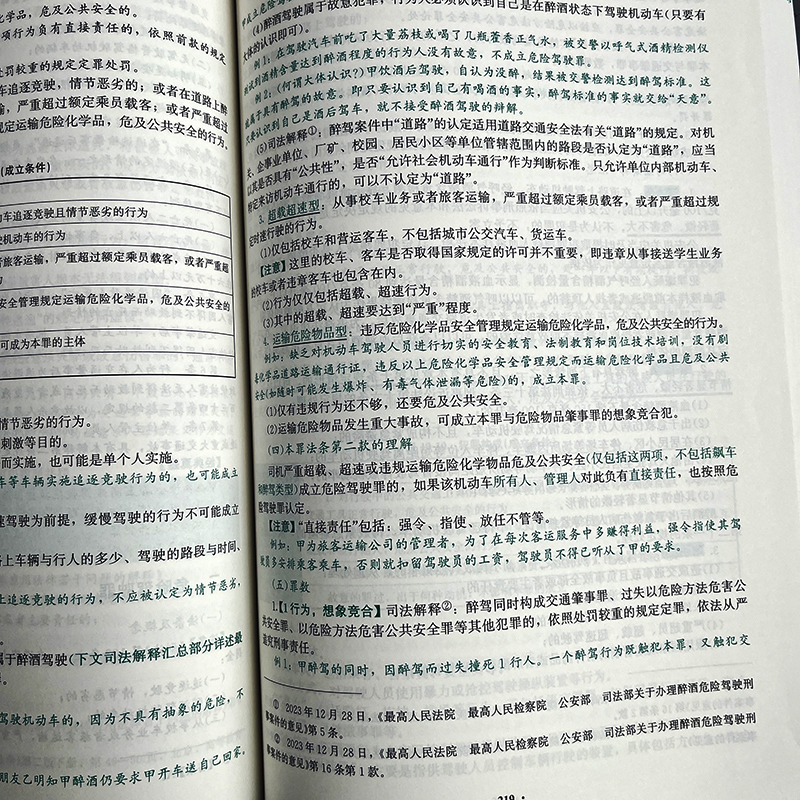 化学品，危及公共安全的。
项行为负有直接责任的，依照前款的规定
处罚较重的规定定罪处罚。
车追逐竞驶，情节恶劣的；或者在道路上醉
，严重超过额定乘员载客；或者严重超过
规定运输危险化学品，危及公共安全的行为。
(成立条件)
动车追逐竞驶且情节恶劣的行为
史机动车的行为
者旅客运输，严重超过额定乘员载客，或者严重超
安全管理规定运输危险化学品，危及公共安全的
可成为本罪的主体
情节恶劣的行为。
刺激等目的。
而实施，也可能是单个人实施。
车等车辆实施追逐竞驶行为的，也可能成立
速驾驶为前提，缓慢驾驶的行为不可能成立
路上车辆与行人的多少、驾驶的路段与时间、
上追逐竞驶的行为，不应被认定为情节恶劣，
属于醉酒驾驶(下文司法解释汇总部分详述最
驾驶机动车的，因为不具有抽象的危险，不
朋友乙明知甲醉酒仍要求甲开车送自己回家。
(4)醉酒驾驶属于故意犯罪，行为人必须认识到自己是在醉酒状态下驾驶机动车(只要有
大体的认识即可)。
例1：在驾驶汽车前吃了大量荔枝或喝了几瓶藿香正气水，被交警以呼气式酒精检测仪
测试到酒精含量达到醉酒程度的行为人没有故意，不成立危险驾驶罪。
例2：(何谓大体认识?)甲饮酒后驾驶，自认为没醉，结果被交警检测达到醉驾标准。这
就属于具有醉驾的故意。即只要认识到自己有喝酒的事实，醉驾标准的事实就交给“天意”。
只要认识到自己是酒后驾车，就不接受醉酒驾驶的辩解。
(5)司法解释①：醉驾案件中“道路”的认定适用道路交通安全法有关“道路”的规定。对机
关、企事业单位、厂矿、校园、居民小区等单位管辖范围内的路段是否认定为“道路”，应当
以其是否具有“公共性”，是否“允许社会机动车通行”作为判断标准。只允许单位内部机动车、
特定来访机动车通行的，可以不认定为“道路”。
3. 超载超速型：从事校车业务或者旅客运输，严重超过额定乘员载客，或者严重超过规
定时速行驶的行为。
(1)仅包括校车和营运客车，不包括城市公交汽车、货运车。
【注意】这里的校车、客车是否取得国家规定的许可并不重要，即违章从事接送学生业务
的校车或者违章客车也包含在内。
(2)行为仅仅包括超载、超速行为。
(3)其中的超载、超速要达到“严重”程度。
4. 运输危险物品型：违反危险化学品安全管理规定运输危险化学品，危及公共安全的行为。
例如：缺乏对机动车驾驶人员进行切实的安全教育、法制教育和岗位技术培训，没有剧
毒化学品道路运输通行证，违反以上危险化学品安全管理规定而运输危险化学品且危及公共
安全(如随时可能发生爆炸、有毒气体泄漏等危险)的，成立本罪。
(1)仅有违规行为还不够，还要危及公共安全。
(2)运输危险物品发生重大事故，可成立本罪与危险物品肇事罪的想象竞合犯。
(四)本罪法条第二款的理解
司机严重超载、超速或违规运输危险化学物品危及公共安全(仅包括这两项，不包括飙车
和醉驾类型)成立危险驾驶罪的，如果该机动车所有人、管理人对此负有直接责任，也按照危
险驾驶罪认定。
【注意】“直接责任”包括：强令、指使、放任不管等。
例如：甲为旅客运输公司的管理者，为了在每次客运服务中多赚得利益，强令指使其驾
驶员多安排乘客乘车，否则就扣留驾驶员的工资，驾驶员不得已听从了甲的要求。
(五)罪数
1.【1行为，想象竞合】司法解释②：醉驾同时构成交通肇事罪、过失以危险方法危害公
共安全罪、以危险方法危害公共安全罪等其他犯罪的，依照处罚较重的规定定罪，依法从严
追究刑事责任。
例1：甲醉驾的同时，因醉驾而过失撞死1行人。一个醉驾行为既触犯本罪，又触犯交
① 2023年12月28日，《最高人民法院 最高人民检察院 公安部 司法部关于办理醉酒危险驾驶刑
事案件的意见》第5条。
② 2023年12月28日，《最高人民法院 最高人民检察院 公安部 司法部关于办理醉酒危险驾驶刑
事案件的意见》第16条第1款。